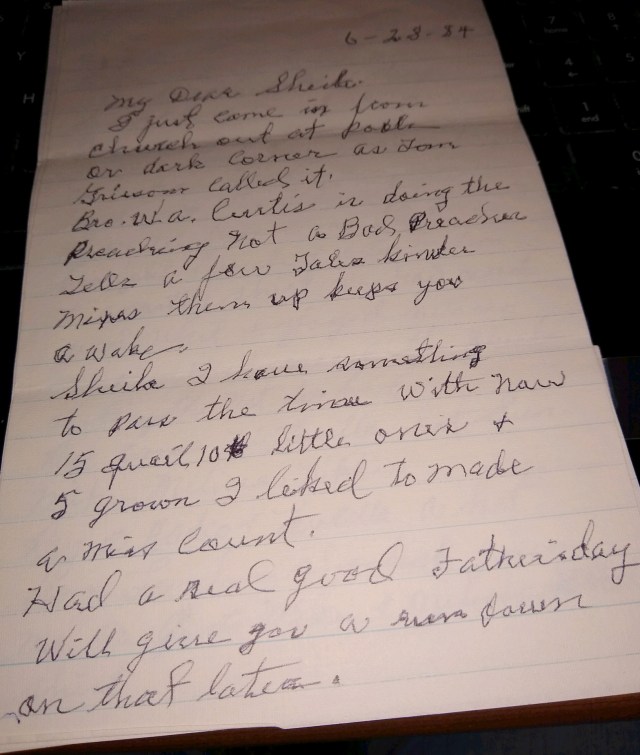 6-28-84
My Dear Sheila.
I just come in from
church out at
or dark Corner as Tom
Grissom Called it.
Bro. W.A. Curtis is doing the
Preaching Not a Bad Preacher
Tells a few Tales kinder
Mixes them up keeps you
a wake.
Sheila I have something
to pass the time With Now
15 quail 10 little ones &
5 grown I liked to made
a Miss Count.
Had a real good Fathersday
Will give you a run down
on that later.